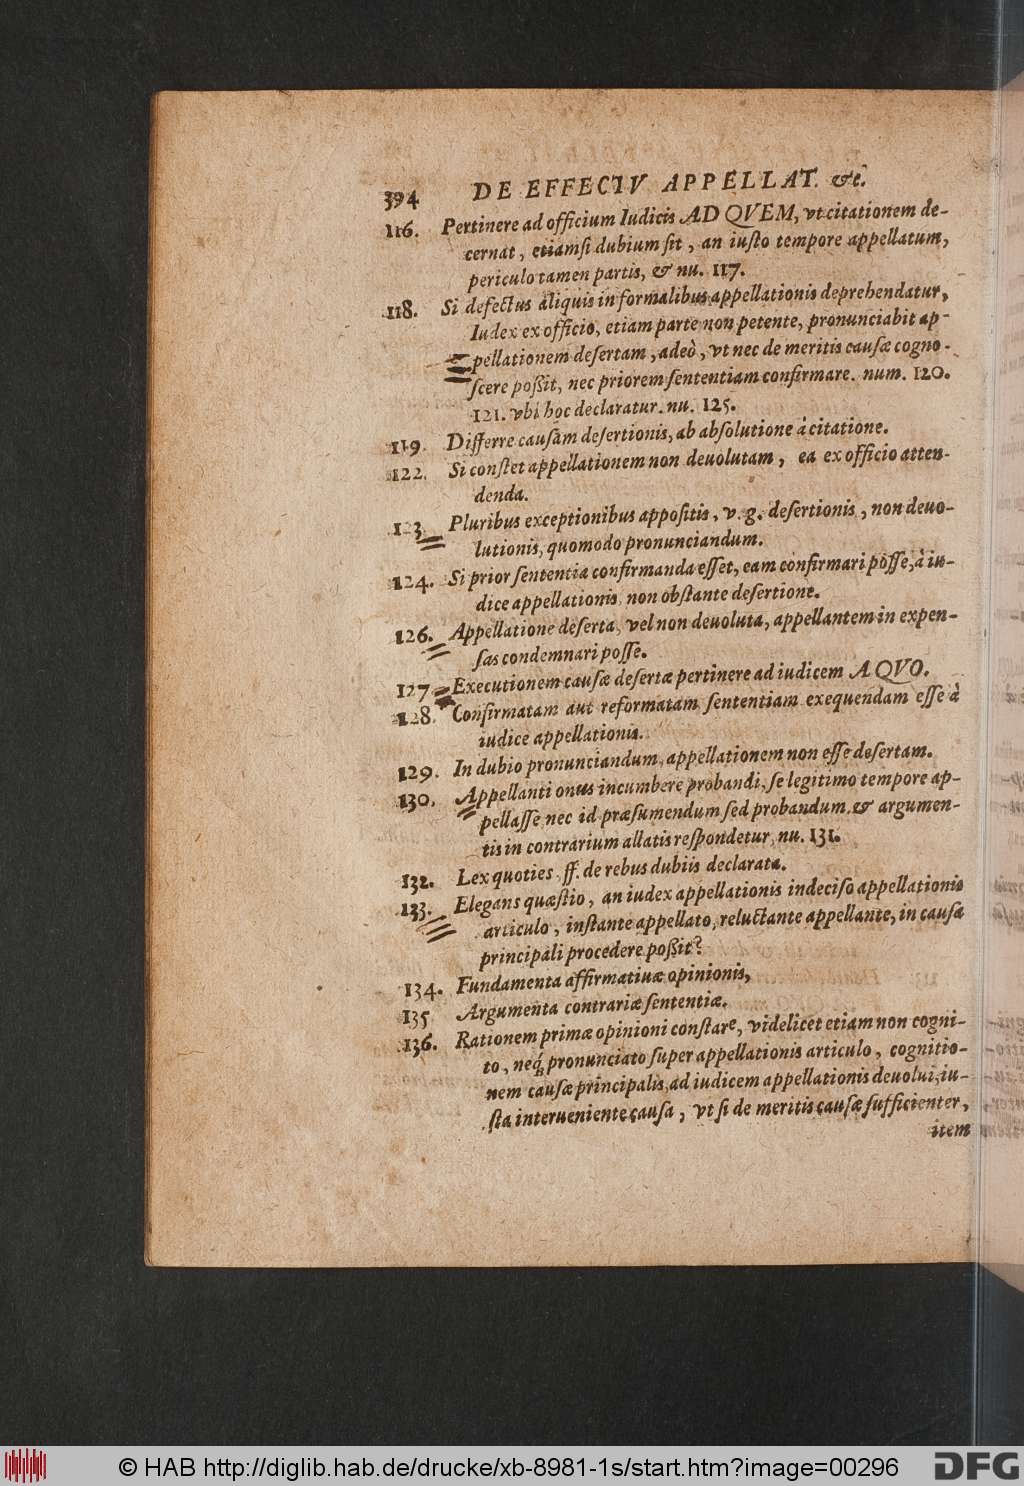 394 DE EFFECTV APPELLAT. &c.
116. Pertinere ad officium Iudicis AD QVEM, vt citationem de-
cernat, etiamsi dubium sit, an iusto tempore appellatum,
periculo tamen partis, & nu. 117.
118. Si defectus aliquis in formalibus appellationis deprehendatur,
Iudex ex officio, etiam parte non petente, pronunciabit ap-
pellationem desertam, adeò, vt nec de meritis causæ cogno-
scere poßit, nec priorem sententiam confirmare. num. 120.
121. vbi hoc declaratur. nu. 125.
119. Differre causam desertionis, ab absolutione à citatione.
122. Si constet appellationem non deuolutam, ea ex officio atten-
denda.
123. Pluribus exceptionibus appositis, v. g. desertionis, non deuo-
lutionis, quomodo pronunciandum.
124. Si prior sententia confirmanda esset, eam confirmari posse, à iu-
dice appellationis non obstante desertione.
126. Appellatione deserta, vel non deuoluta, appellantem in expen-
sas condemnari posse.
127. Executionem causæ desertæ pertinere ad iudicem A QVO.
128. Confirmatam aut reformatam sententiam exequendam esse à
iudice appellationis.
129. In dubio pronunciandum, appellationem non esse desertam.
130. Appellanti onus incumbere probandi, se legitimo tempore ap-
pellasse, nec id præsumendum sed probandum. & argumen-
tis in contrarium allatis respondetur, nu. 131.
132. Lex quoties. ff. de rebus dubiis declarata.
133. Elegans quæstio, an iudex appellationis indeciso appellationis
articulo, instante appellato, reluctante appellante, in causa
principali procedere poßit?
134. Fundamenta affirmatiuæ opinionis,
135 Argumenta contrariæ sententiæ.
136. Rationem primæ opinioni constare, videlicet etiam non cogni-
to, neq; pronunciato super appellationis articulo, cognitio-
nem causæ principalis, ad iudicem appellationis deuolui, iu-
sta interueniente causa, vt si de meritis causæ sufficienter,
item
© HAB http://diglib.hab.de/drucke/xb-8981-1s/start.htm?image=00296
DFG